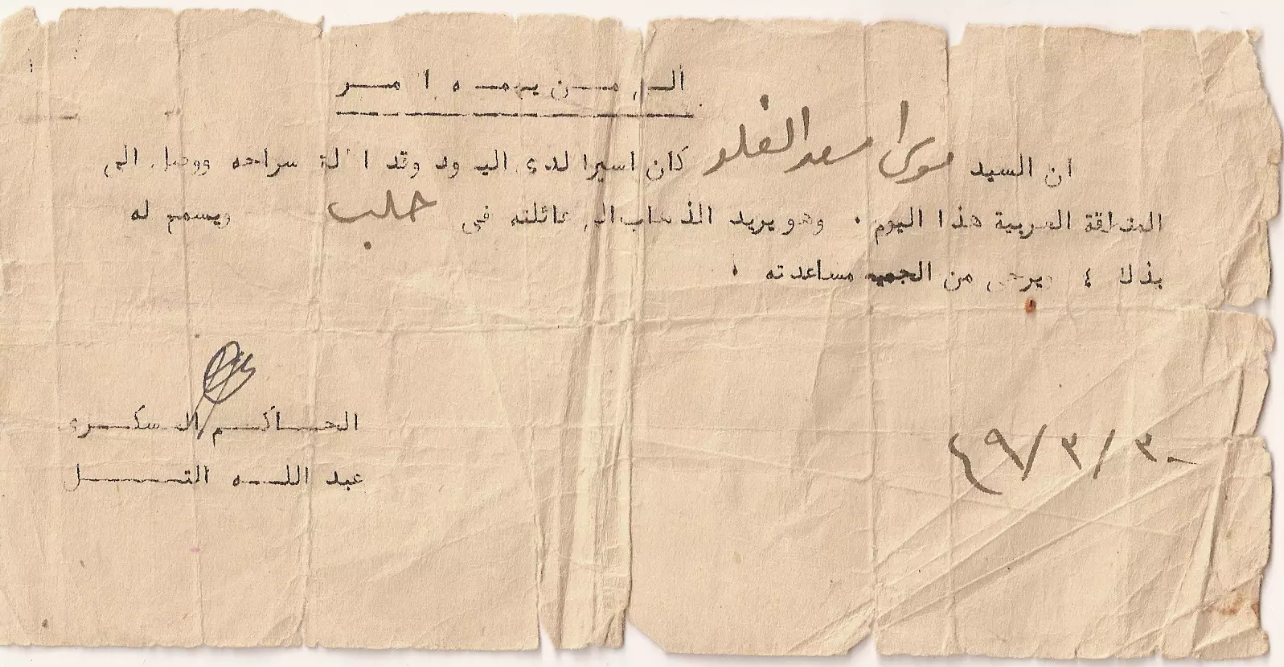 الى من يهمه امر
ان السيد موسى اسعد كان اسيرا لدى اليهود وقد اطلق سراحه ووصل الى
المنطقة العربية هذا اليوم . وهو يريد الذهاب الى عائلته في حلب ويسمح له
بذلك يرجى من الجميع مساعدته .
٤٩/٣/٣٠
الحاكم العسكري
عبد الله التل